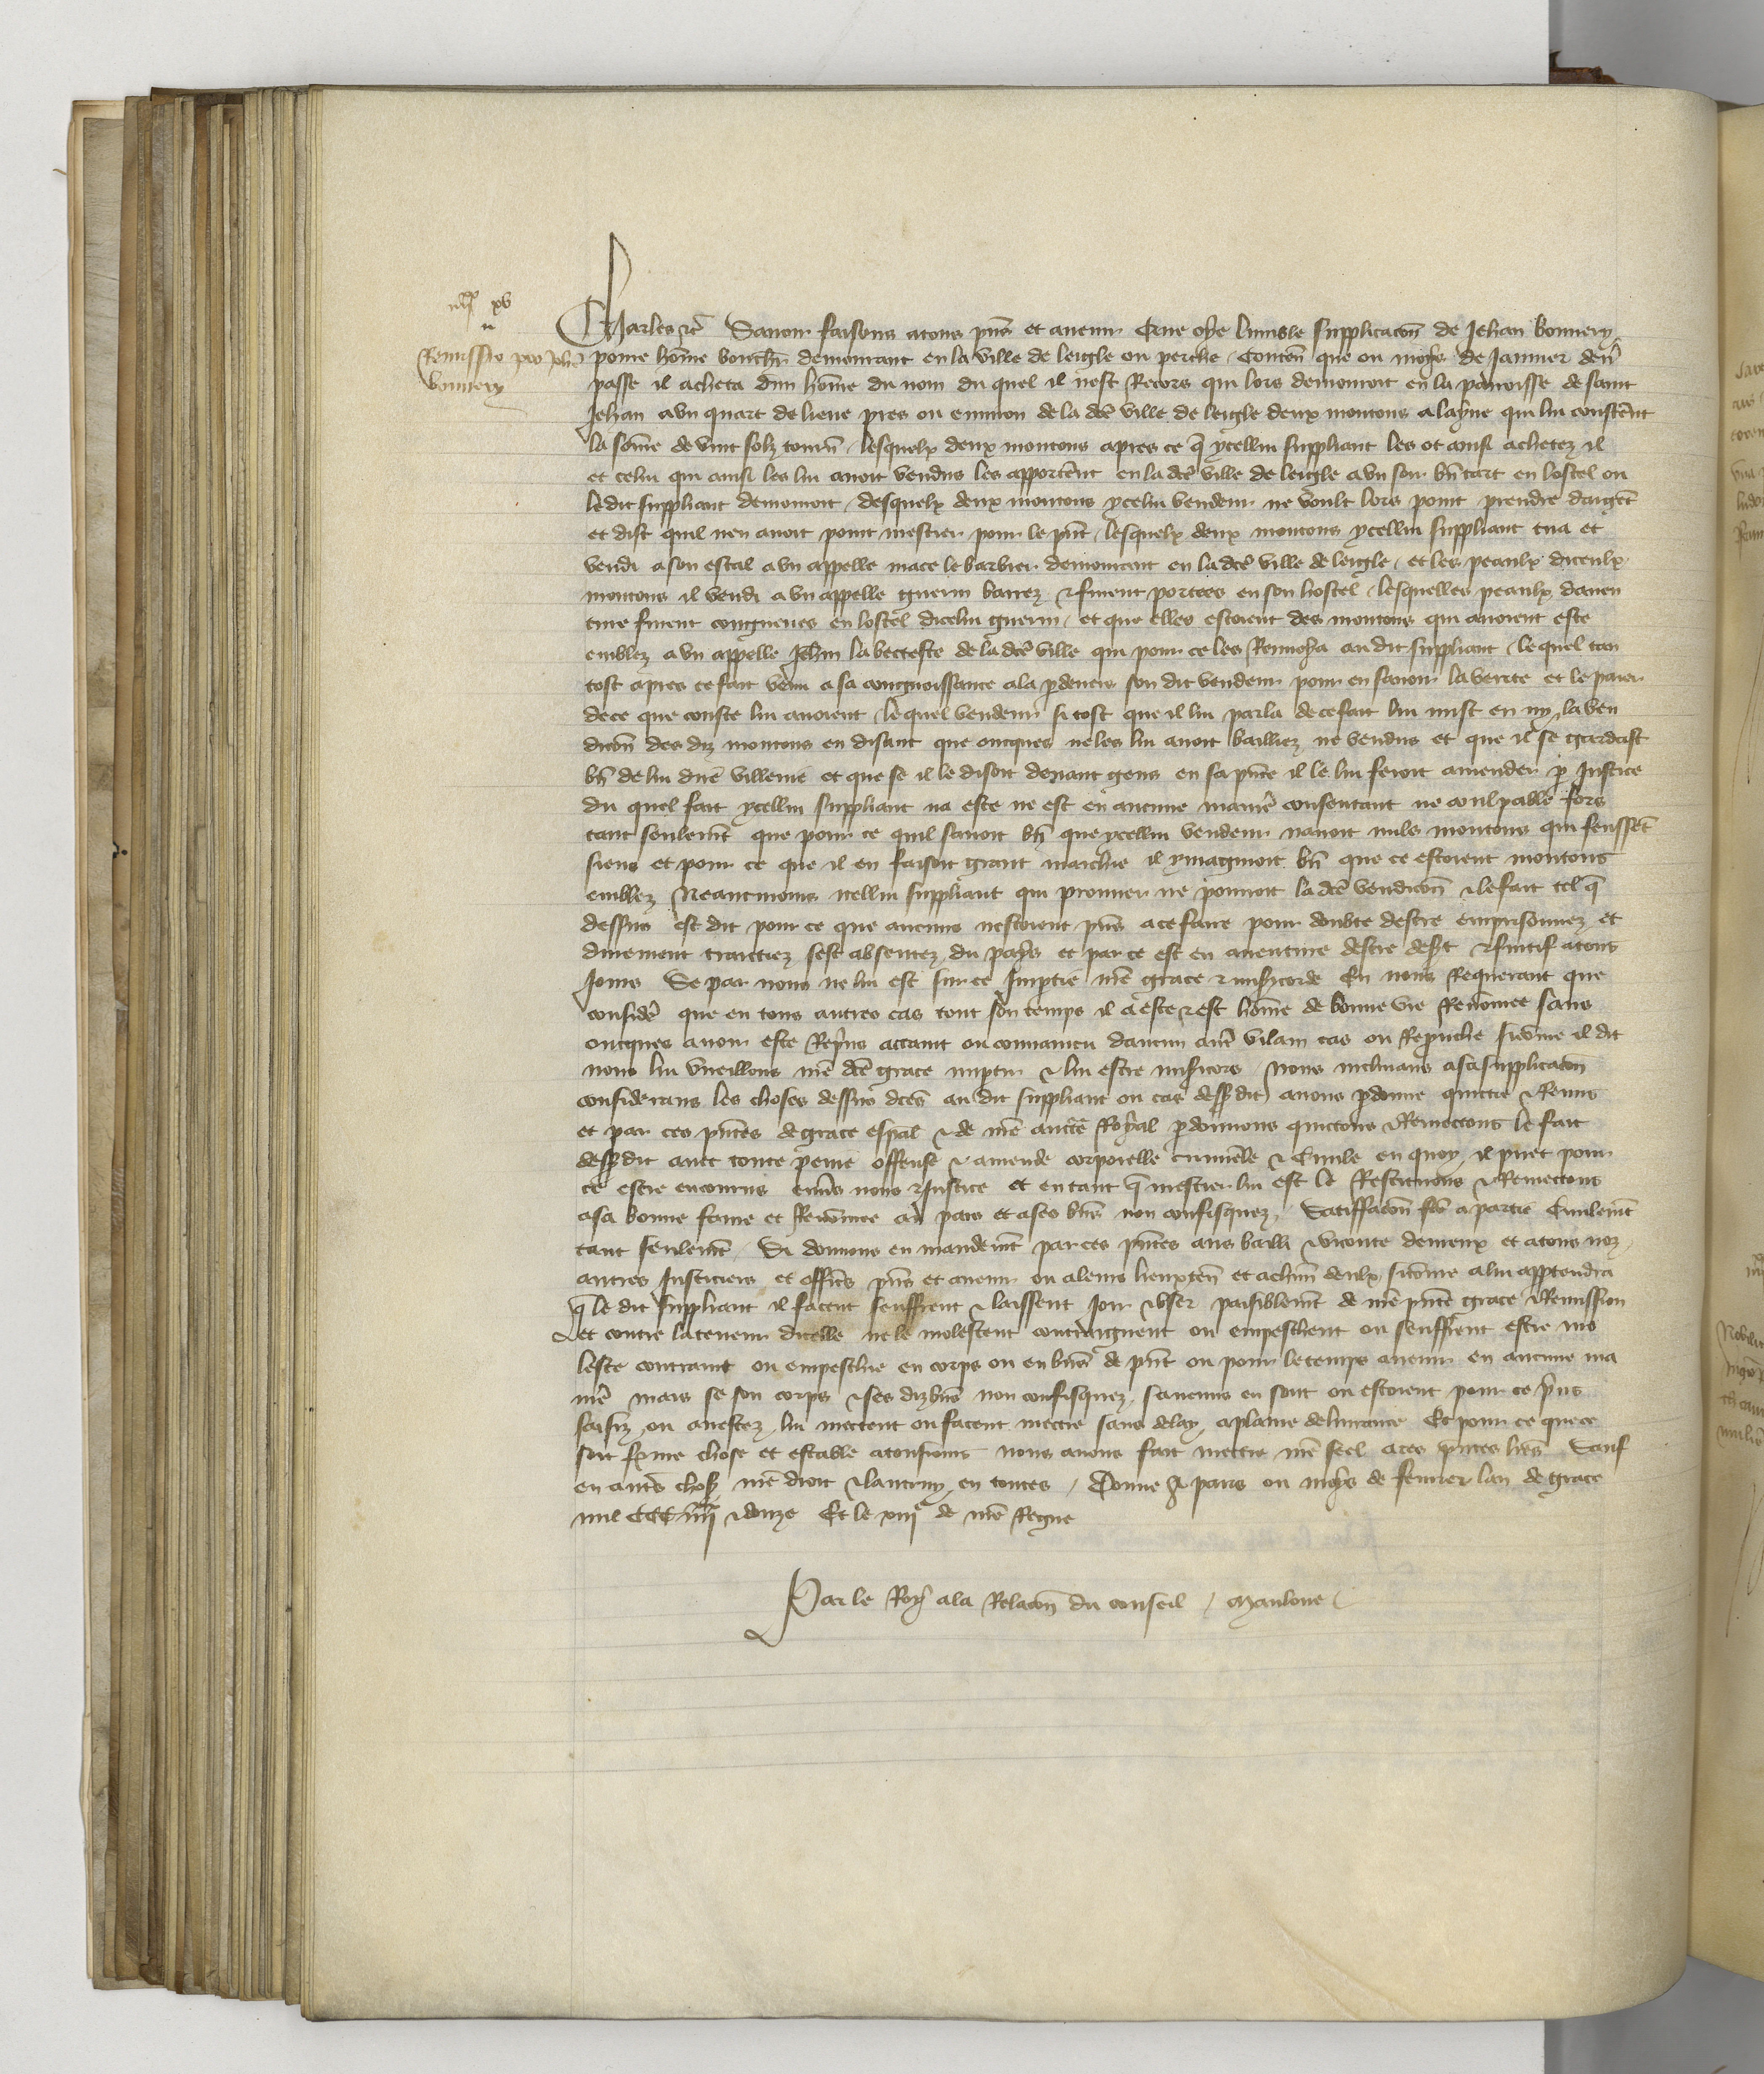 xv
Remissio pro Joh̄e
bonnery
Charles &c̃ Savoir faisons a tous pñs et avenir Que oye lumble supplicacõn de Jehan bonnery
povre hõme bouch̃ demourant en la ville de leigle ou perche / Conteñ que ou moys de Janvier deñr
passe il acheta dun hõme du nom du quel il nest Recors qui lors demouroit en la parroisse de saint
Jehan a un quart de lieue pres ou environ de la dc̃e ville de leigle deux moutons a layne qui lui coustẽrnt
la sõme de vint solz tourñ / lesquelx deux moutons apres ce q̃ ycellui suppliant les ot ainsi achetez il
et celui qui ainsi les lui avoit vendus les apportẽrnt en la dc̃e ville de leigle a un soir bñ tart en lostel ou
ledit suppliant demouroit / desquelx deux moutons ycelui vendeur ne voult lors point prendre dargẽt
et dist quil nen avoit point mestier pour le pñt / lesquelx deux moutons ycellui suppliant tua et
vendi a son estal a un appelle mace le barbier demourant en la dc̃e ville de leigle / et les peaulx diceulx
moutons il vendi a un appelle guerin barrez & furent portees en son hostel / lesquelles peaulx daven
ture furent congneues en lostel dicelui guerin / et que elles estoient des moutons qui avoient este
emblez a un appelle Jehan labecteste de la dc̃e ville qui pour ce les Renvoya au dit suppliant / le quel tan
tost apres ce fait venu a sa congnoissance ala p̱devers son dit vendeur pour en savoir la verite et le paier
de ce que couste lui avoient / le quel vendeur si tost que il lui parla de ce fait lui mist en ny la ven
dicõn des diz moutons en disant que oncques ne les lui avoit bailliez ne vendus et que il se gardast
bñ de lui dire villenie et que se il le disoit devant gens en sa pñce il le lui feroit amender p̱ Justice
du quel fait ycellui suppliant na este ne est en aucune manier̃ consentant ne coulpable fors
tant seulemẽt que pour ce quil savoit bñ que ycellui vendeur navoit nuls moutons qui feussẽt
siens et pour ce que il en faisoit grant marchie il ymaginoit bñ que ce estoient moutons
emblez Neantmoins icellui suppliant qui prouver ne pourroit la dc̃e vendicõn & le fait tel q̃
dessus est dit pour ce que aucuns nestoient pñs a ce faire pour doubte destre emprisonnez et
durement traictiez sest absentez du pays et par ce est en aventure destre desert & fuitif a tous
Jours Se par nous ne lui est sur ce Imp̱tie nr̃e grace & mis̃icorde En nous Requerant que
consider̃ que en tous autres cas tout son temps il a este & est hõme de bonne vie Renõmee sans
oncques avoir este Rep̱ns attaint ou convaincu daucun aut̃ vilain cas ou Rep̱uche si cõme il dit
nous lui vueillons nr̃e dc̃e grace imp̱tir & lui estre mis̃icors / Nous inclinans a sa supplicacõn
considerans les choses dessus dc̃es au dit suppliant ou cas dess̱ dit avons p̱donne quictie & Remis
et par ces pñtes de grace esp̃al & de nr̃e auctc̃e Royal p̱donnons quictons & Remectons le fait
dess̱ dit avec toute peine offense & amende corporelle criminele & Civile en quoy il puet pour
ce estre encourus env̱s nous & Justice et en tant q̃ mestier lui est le Restituons & Remectons
a sa bonne fame et Renõmee au pais et a ses biẽs non confisquez / Satiffacõn fc̃e a partie Civilemẽt
tant seulemẽt / Si donnons en mandemẽt par ces pñtes aus bailli & viconte devreux et a tous noz
autres Justiciers et offic̃s pñs et avenir ou a leurs lieuxteñ et a chũn deulx si cõme a lui app̱tendra
q̃ le dit suppliant il facent seuffrent & laissent Joir & user paisiblemẽt de nr̃e pñte grace & Remission
et contre la teneur dicelle ne le molestent contraignent ou empeschent ou seuffrent estre mo
leste contraint ou empeschie en corps ou en biẽs de pñt ou pour le temps avenir en aucune ma
nir̃ mais se son corps & ses diz biẽs non confisquez / saucuns en sont ou estoient pour ce p̱ns
saisiz ou arrestez lui mettent ou facent mettre sans delay a plaine delivrance Et pour ce que ce
soit f̱me chose et estable a tousiours nous avons fait mettre nr̃e seel a ces pñtes lr̃es Sauf
en autr̃s chos̱ nr̃e droit & lautruy en toutes / Donne a paris ou moys de fevrier lan de grace
mil CCC iiii^xx & douze Et le xiii^e de nr̃e Regne
Par le Roy a la Relacõn du conseil / Manloue